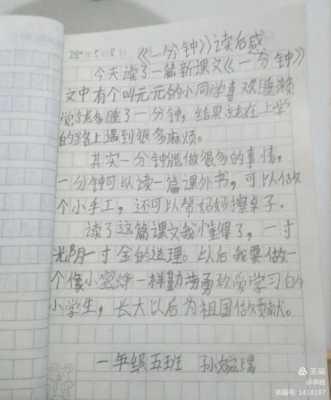 《一分钟》读后感
今天读了一篇新课文《一分钟》
文中有个叫元元的小同学喜欢睡懒
觉就多睡了一分钟，结果就在上学
的路上遇到很多麻烦。
其实一分钟能做很多的事情，
一分钟可以读一篇课外书，可以做
个小手工，还可以帮妈妈擦桌子。
读了这篇课文我懂得了，一寸
光阴一寸金的道理。以后我要做一
个像小蜜蜂一样勤劳勇敢学习的
小学生，长大以后为祖国做贡献。
一年级五班 孙